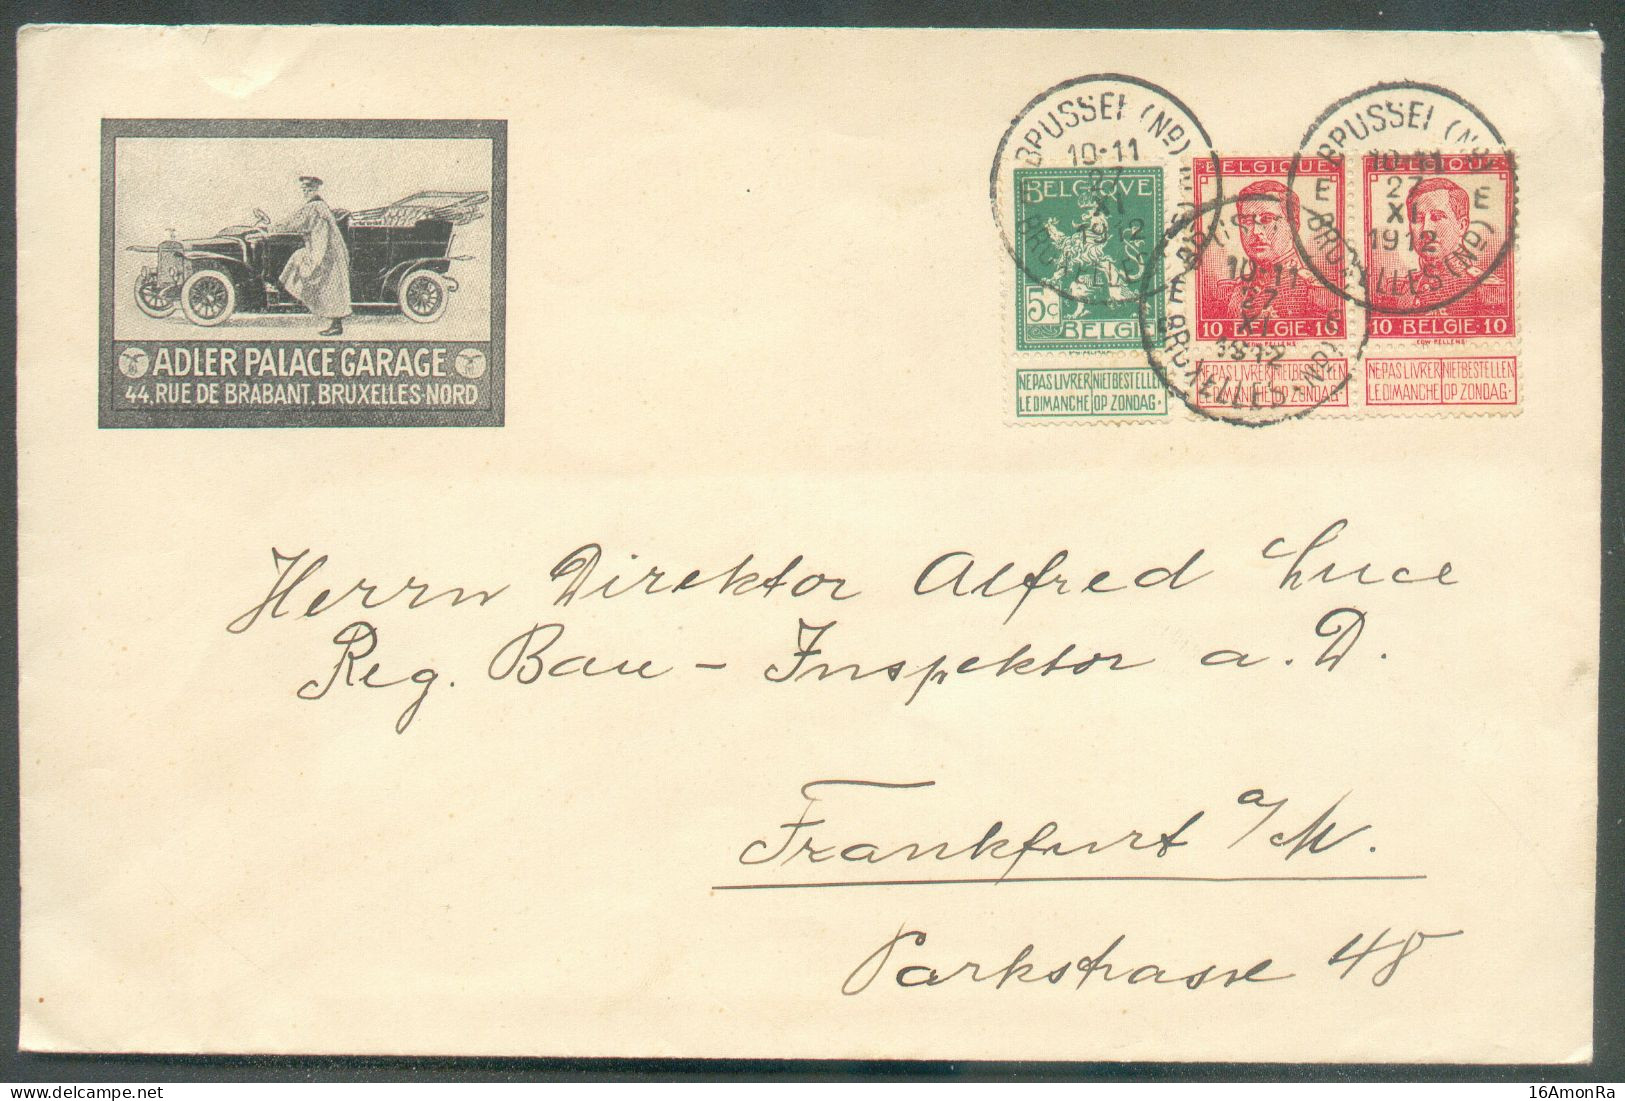 ADLER PALACE GARAGE
44, RUE DE BRABANT, BRUXELLES-NORD
BRUSSEL (Nd)
10-11
27
XI
1912
BRUXELLES (Nd)
E
BRUSSEL (Nd)
10-11
27
XI
1912
E E
BRUXELLES (Nd)
10-11
27
XI
1912
BRUXELLES (Nd)
BELGIQUE
5c
BELGIË
NE PAS LIVRER NIET BESTELLEN
LE DIMANCHE OP ZONDAG.
BELGIQUE
10 BELGIE 10
NE PAS LIVRER NIET BESTELLEN
LE DIMANCHE OP ZONDAG.
BELGIQUE
10 BELGIE 10
NE PAS LIVRER NIET BESTELLEN
LE DIMANCHE OP ZONDAG.
Herrn Direktor Alfred Luce
Reg. Bau - Inspektor a. D.
Frankfurt a/M.
Parkstrasse 48
delcampe.net
16AmonRa